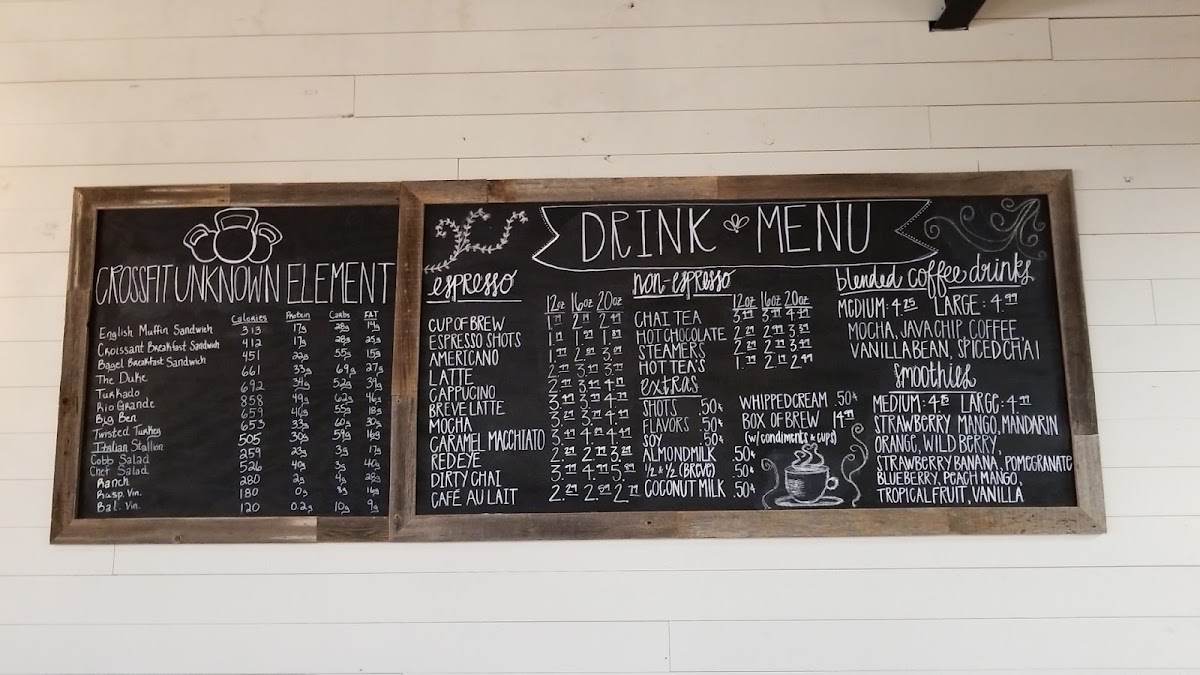 CROSSFIT UNKNOWN ELEMENT
Calories Protein Carbs FAT
English Muffin Sandwich 313 17g 28g 14g
Croissant Breakfast Sandwich 412 17g 28g 25g
Bagel Breakfast Sandwich 451 22g 55g 15g
The Duke 661 33g 69g 27g
Turkado 692 34g 52g 39g
Rio Grande 858 49g 62g 46g
Big Ben 659 46g 55g 18g
Twisted Turkey 653 33g 60g 30g
Italian Stallion 505 30g 59g 16g
Cobb Salad 259 23g 3g 17g
Chef Salad 526 40g 3g 40g
Ranch 280 2g 4g 28g
Rasp. Vin. 180 0g 8g 16g
Bal. Vin. 120 0.2g 10g 9g
DRINK MENU
espresso
12oz 16oz 20oz
CUP OF BREW
ESPRESSO SHOTS
AMERICANO
LATTE
CAPPUCINO
BREVE LATTE
MOCHA
CARAMEL MACCHIATO
RED EYE
DIRTY CHAI
CAFÉ AU LAIT
non-espresso
12oz 16oz 20oz
CHAI TEA
HOT CHOCOLATE
STEAMERS
HOT TEAS
extras
SHOTS .50¢
FLAVORS .50¢
SOY .50¢
ALMOND MILK .50¢
1/2 & 1/2 (BREVE) .50¢
COCONUT MILK .50¢
WHIPPED CREAM .50¢
BOX OF BREW 14.99
(w/ condiments & cups)
blended coffee drinks
MEDIUM: 4.25 LARGE: 4.99
MOCHA, JAVA CHIP, COFFEE,
VANILLA BEAN, SPICED CHAI
Smoothies
MEDIUM: 4.25 LARGE: 4.99
STRAWBERRY MANGO, MANDARIN
ORANGE, WILD BERRY,
STRAWBERRY BANANA, POMEGRANATE
BLUEBERRY, PEACH MANGO,
TROPICAL FRUIT, VANILLA